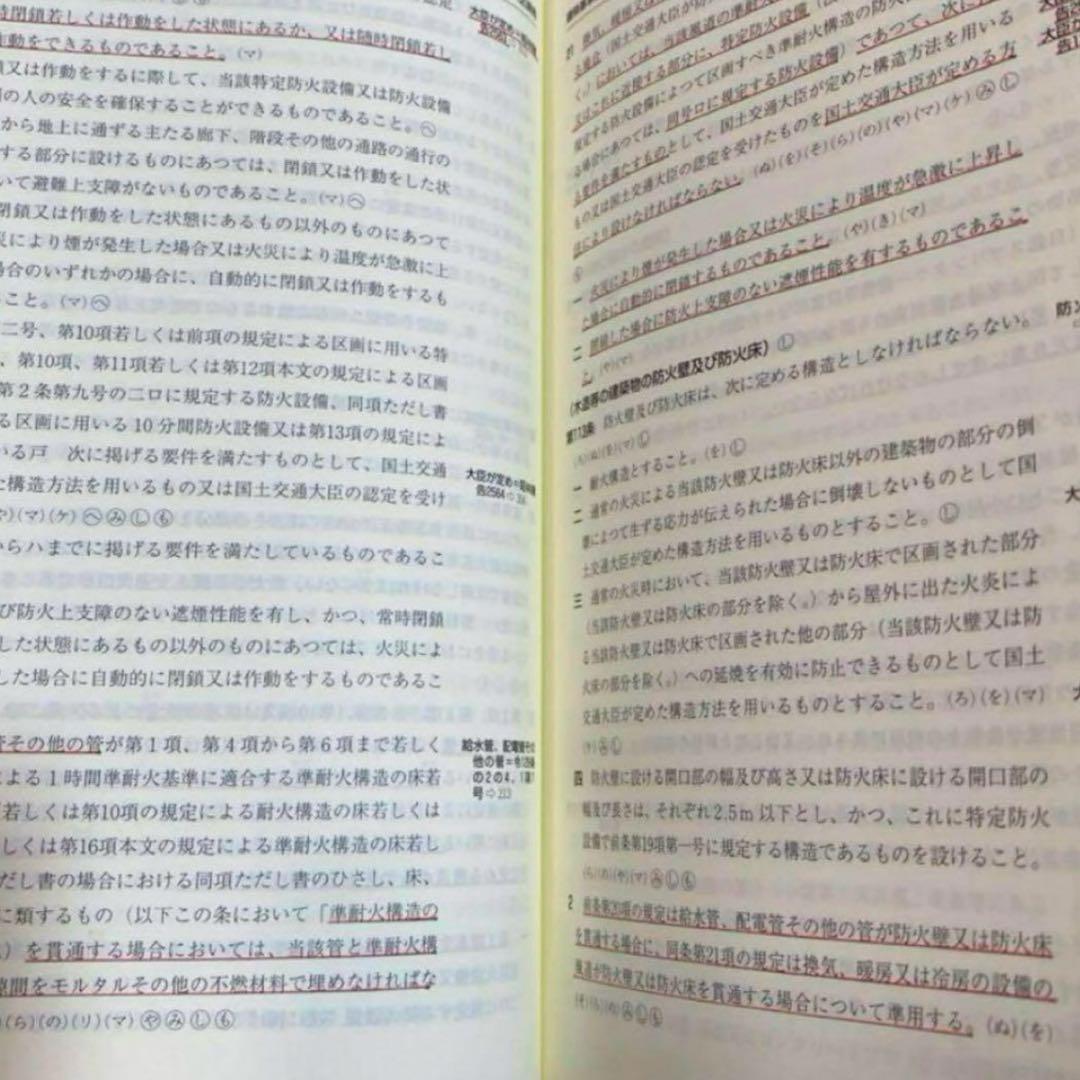 若しくは作動をした状態にあるか、又は随時閉鎖若し
作動をできるものであること。(マ)
鎖又は作動をするに際して、当該特定防火設備又は防火設備
の人の安全を確保することができるものであること。㋬
から地上に通ずる主たる廊下、階段その他の通路の通行の
する部分に設けるものにあつては、閉鎖又は作動をした状
いて避難上支障がないものであること。(マ)㋬
閉鎖又は作動をした状態にあるもの以外のものにあつて
災により煙が発生した場合又は火災により温度が急激に上
場合のいずれかの場合に、自動的に閉鎖又は作動をするも
こと。(マ)㋬
二号、第10項若しくは前項の規定による区画に用いる特
、第10項、第11項若しくは第12項本文の規定による区画
第2条第九号の二ロに規定する防火設備、同項ただし書
る区画に用いる10分間防火設備又は第13項の規定によ
いる戸　次に掲げる要件を満たすものとして、国土交通
た構造方法を用いるもの又は国土交通大臣の認定を受け
(マ)(ケ)
からハまでに掲げる要件を満たしているものであるこ
び防火上支障のない遮煙性能を有し、かつ、常時閉鎖
した状態にあるもの以外のものにあつては、火災によ
した場合に自動的に閉鎖又は作動をするものであるこ
管その他の管が第1項、第4項から第6項まで若しく
よる1時間準耐火基準に適合する準耐火構造の床若
若しくは第10項の規定による耐火構造の床若しくは
しくは第16項本文の規定による準耐火構造の床若し
だし書の場合における同項ただし書のひさし、床、
に類するもの（以下この条において「準耐火構造の
）を貫通する場合においては、当該管と準耐火構
隙間をモルタルその他の不燃材料で埋めなければな
(ら)(の)(リ)(マ)
大臣が定め
告2564⇨
給水管、配電管その
他の管
の2の4、
号⇨233
る場合（国土交通大臣が
く。）においては、当該風道の準耐火
又はこれに近接する部分に、特定防火設備
規定する防火設備によつて区画すべき準耐火構造の防火
場合にあつては、同号ロに規定する防火設備）であつて、次に掲げ
る要件を満たすものとして、国土交通大臣が定めた構造方法を用いる
もの又は国土交通大臣の認定を受けたものを国土交通大臣が定める方
法により設けなければならない。(ぬ)(を)(そ)(ら)(の)(や)(マ)(ケ)
一　火災により煙が発生した場合又は火災により温度が急激に上昇し
た場合に自動的に閉鎖するものであること。(や)(き)(マ)
二　閉鎖した場合に防火上支障のない遮煙性能を有するものであるこ
と。(や)(マ)
（木造等の建築物の防火壁及び防火床）
第113条　防火壁及び防火床は、次に定める構造としなければならない。
(ろ)(ぬ)(を)(マ)
一　耐火構造とすること。(を)
二　通常の火災による当該防火壁又は防火床以外の建築物の部分の倒
壊によつて生ずる応力が伝えられた場合に倒壊しないものとして国
土交通大臣が定めた構造方法を用いるものとすること。
三　通常の火災時において、当該防火壁又は防火床で区画された部分
（当該防火壁又は防火床の部分を除く。）から屋外に出た火炎によ
る当該防火壁又は防火床で区画された他の部分（当該防火壁又は防
火床の部分を除く。）への延焼を有効に防止できるものとして国土
交通大臣が定めた構造方法を用いるものとすること。(ろ)(を)(マ)
四　防火壁に設ける開口部の幅及び高さ又は防火床に設ける開口部の
幅及び長さは、それぞれ2.5m以下とし、かつ、これに特定防火
設備で前条第19項第一号に規定する構造であるものを設けること。
2　前条第20項の規定は給水管、配電管その他の管が防火壁又は防火床
を貫通する場合に、同条第21項の規定は換気、暖房又は冷房の設備の
風道が防火壁又は防火床を貫通する場合について準用する。(ぬ)(を)
防火